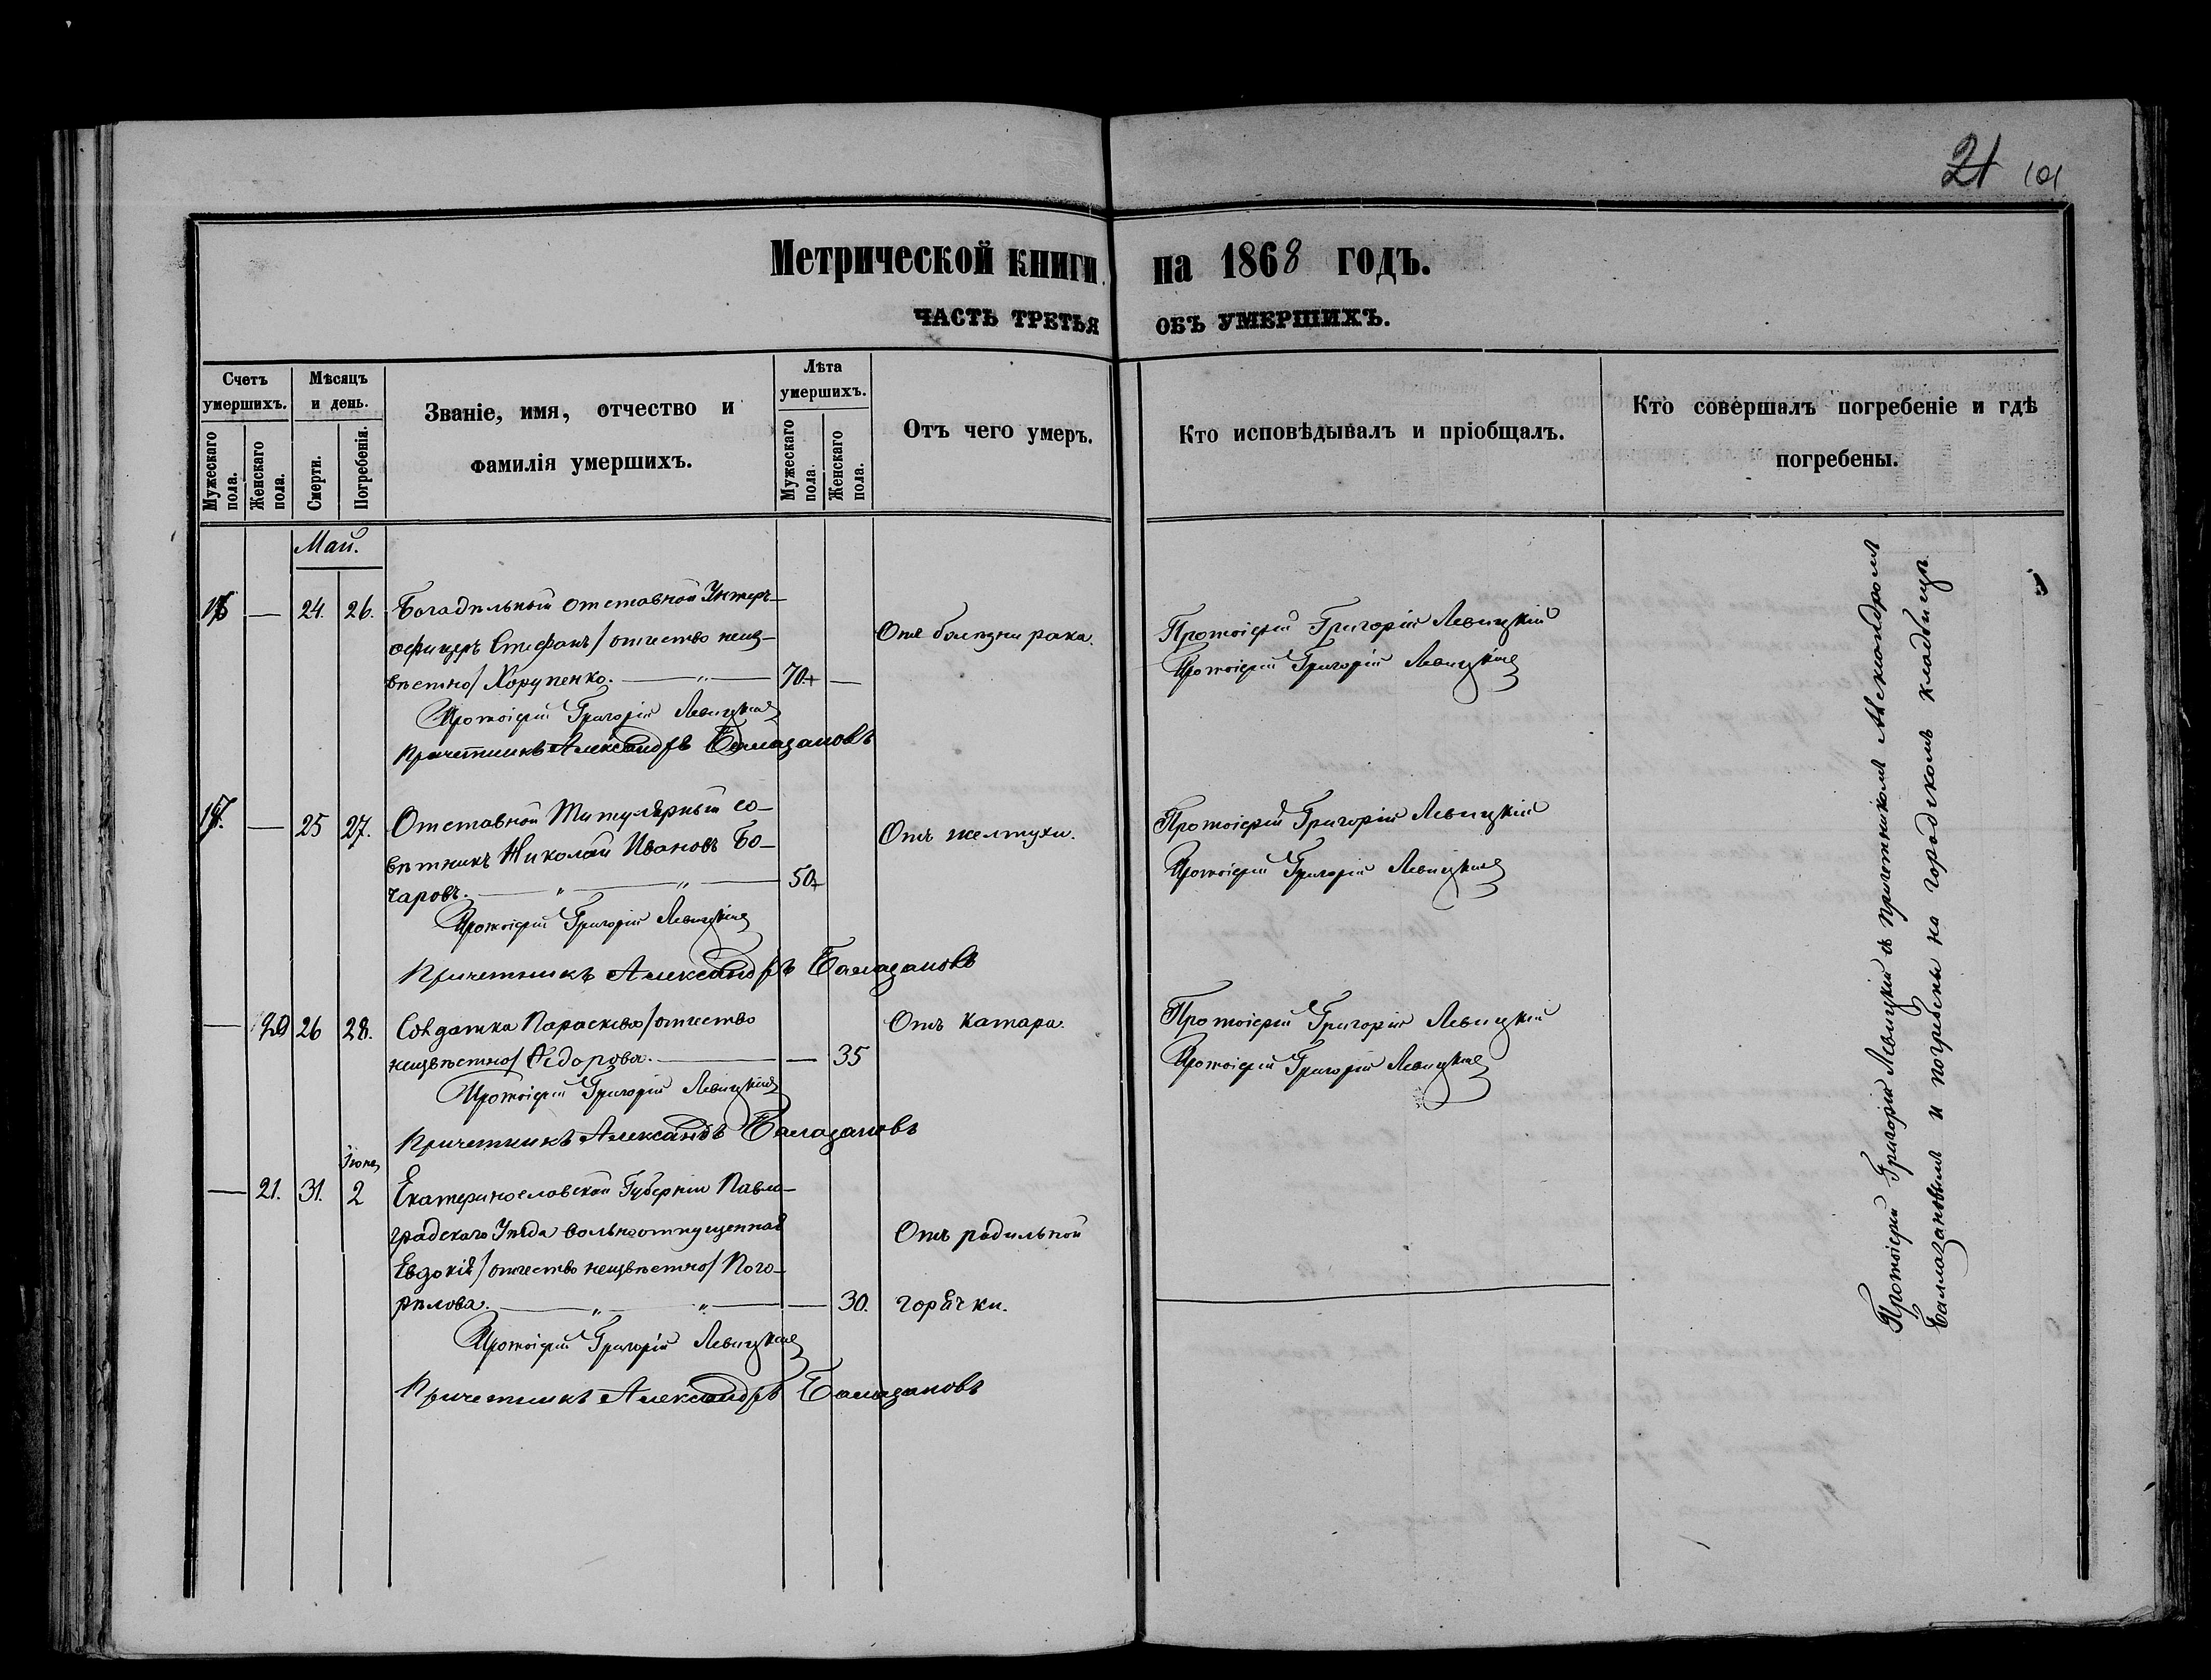 21 101
Метрической книги на 1868 годъ.
ЧАСТЬ ТРЕТЬЯ ОБЪ УМЕРШИХЪ.
Счетъ умершихъ.
Мужескаго пола.
Женскаго пола.
Мѣсяцъ и день.
Смерти.
Погребенія.
Званіе, имя, отчество и
фамилія умершихъ.
Лѣта умершихъ.
Мужескаго пола.
Женскаго пола.
Отъ чего умеръ.
Кто исповѣдывалъ и пріобщалъ.
Кто совершалъ погребеніе и гдѣ
погребены.
Май.
16 — 24. 26. Богадѣльный отставной Унтеръ-
офицеръ Стефанъ / отчество неиз-
вѣстно / Хорупенко. — 70 —
Отъ болѣзни рака.
Протоіерей Григорій Левицкій
Протоіерей Григорій Левицкій
Протоіерей Григорій Левицкій
Причетникъ Александръ Балабановъ
17. — 25 27. Отставной Титулярный со-
вѣтникъ Николай Ивановъ Бо-
чаровъ. — 50
Отъ желтухи.
Протоіерей Григорій Левицкій
Протоіерей Григорій Левицкій
Протоіерей Григорій Левицкій
Причетникъ Александръ Балабановъ
— 20 26 28. Солдатка Параскева / отчество
неизвѣстно / Ѳедорова. — — 35
Отъ катара.
Протоіерей Григорій Левицкій
Протоіерей Григорій Левицкій
Протоіерей Григорій Левицкій
Причетникъ Александъ Балабановъ
Іюня
— 21. 31. 2 Екатеринославской Губерніи Павло-
градскаго Уѣзда вольноотпущенная
Евдокія / отчество неизвѣстно / Пого-
рѣлова. — — 30.
Отъ родильной
горячки.
Протоіерей Григорій Левицкій
Причетникъ Александръ Балабановъ
Протоіерей Григорій Левицкій съ причетникомъ Александромъ
и погребены на городскомъ кладбищѣ.